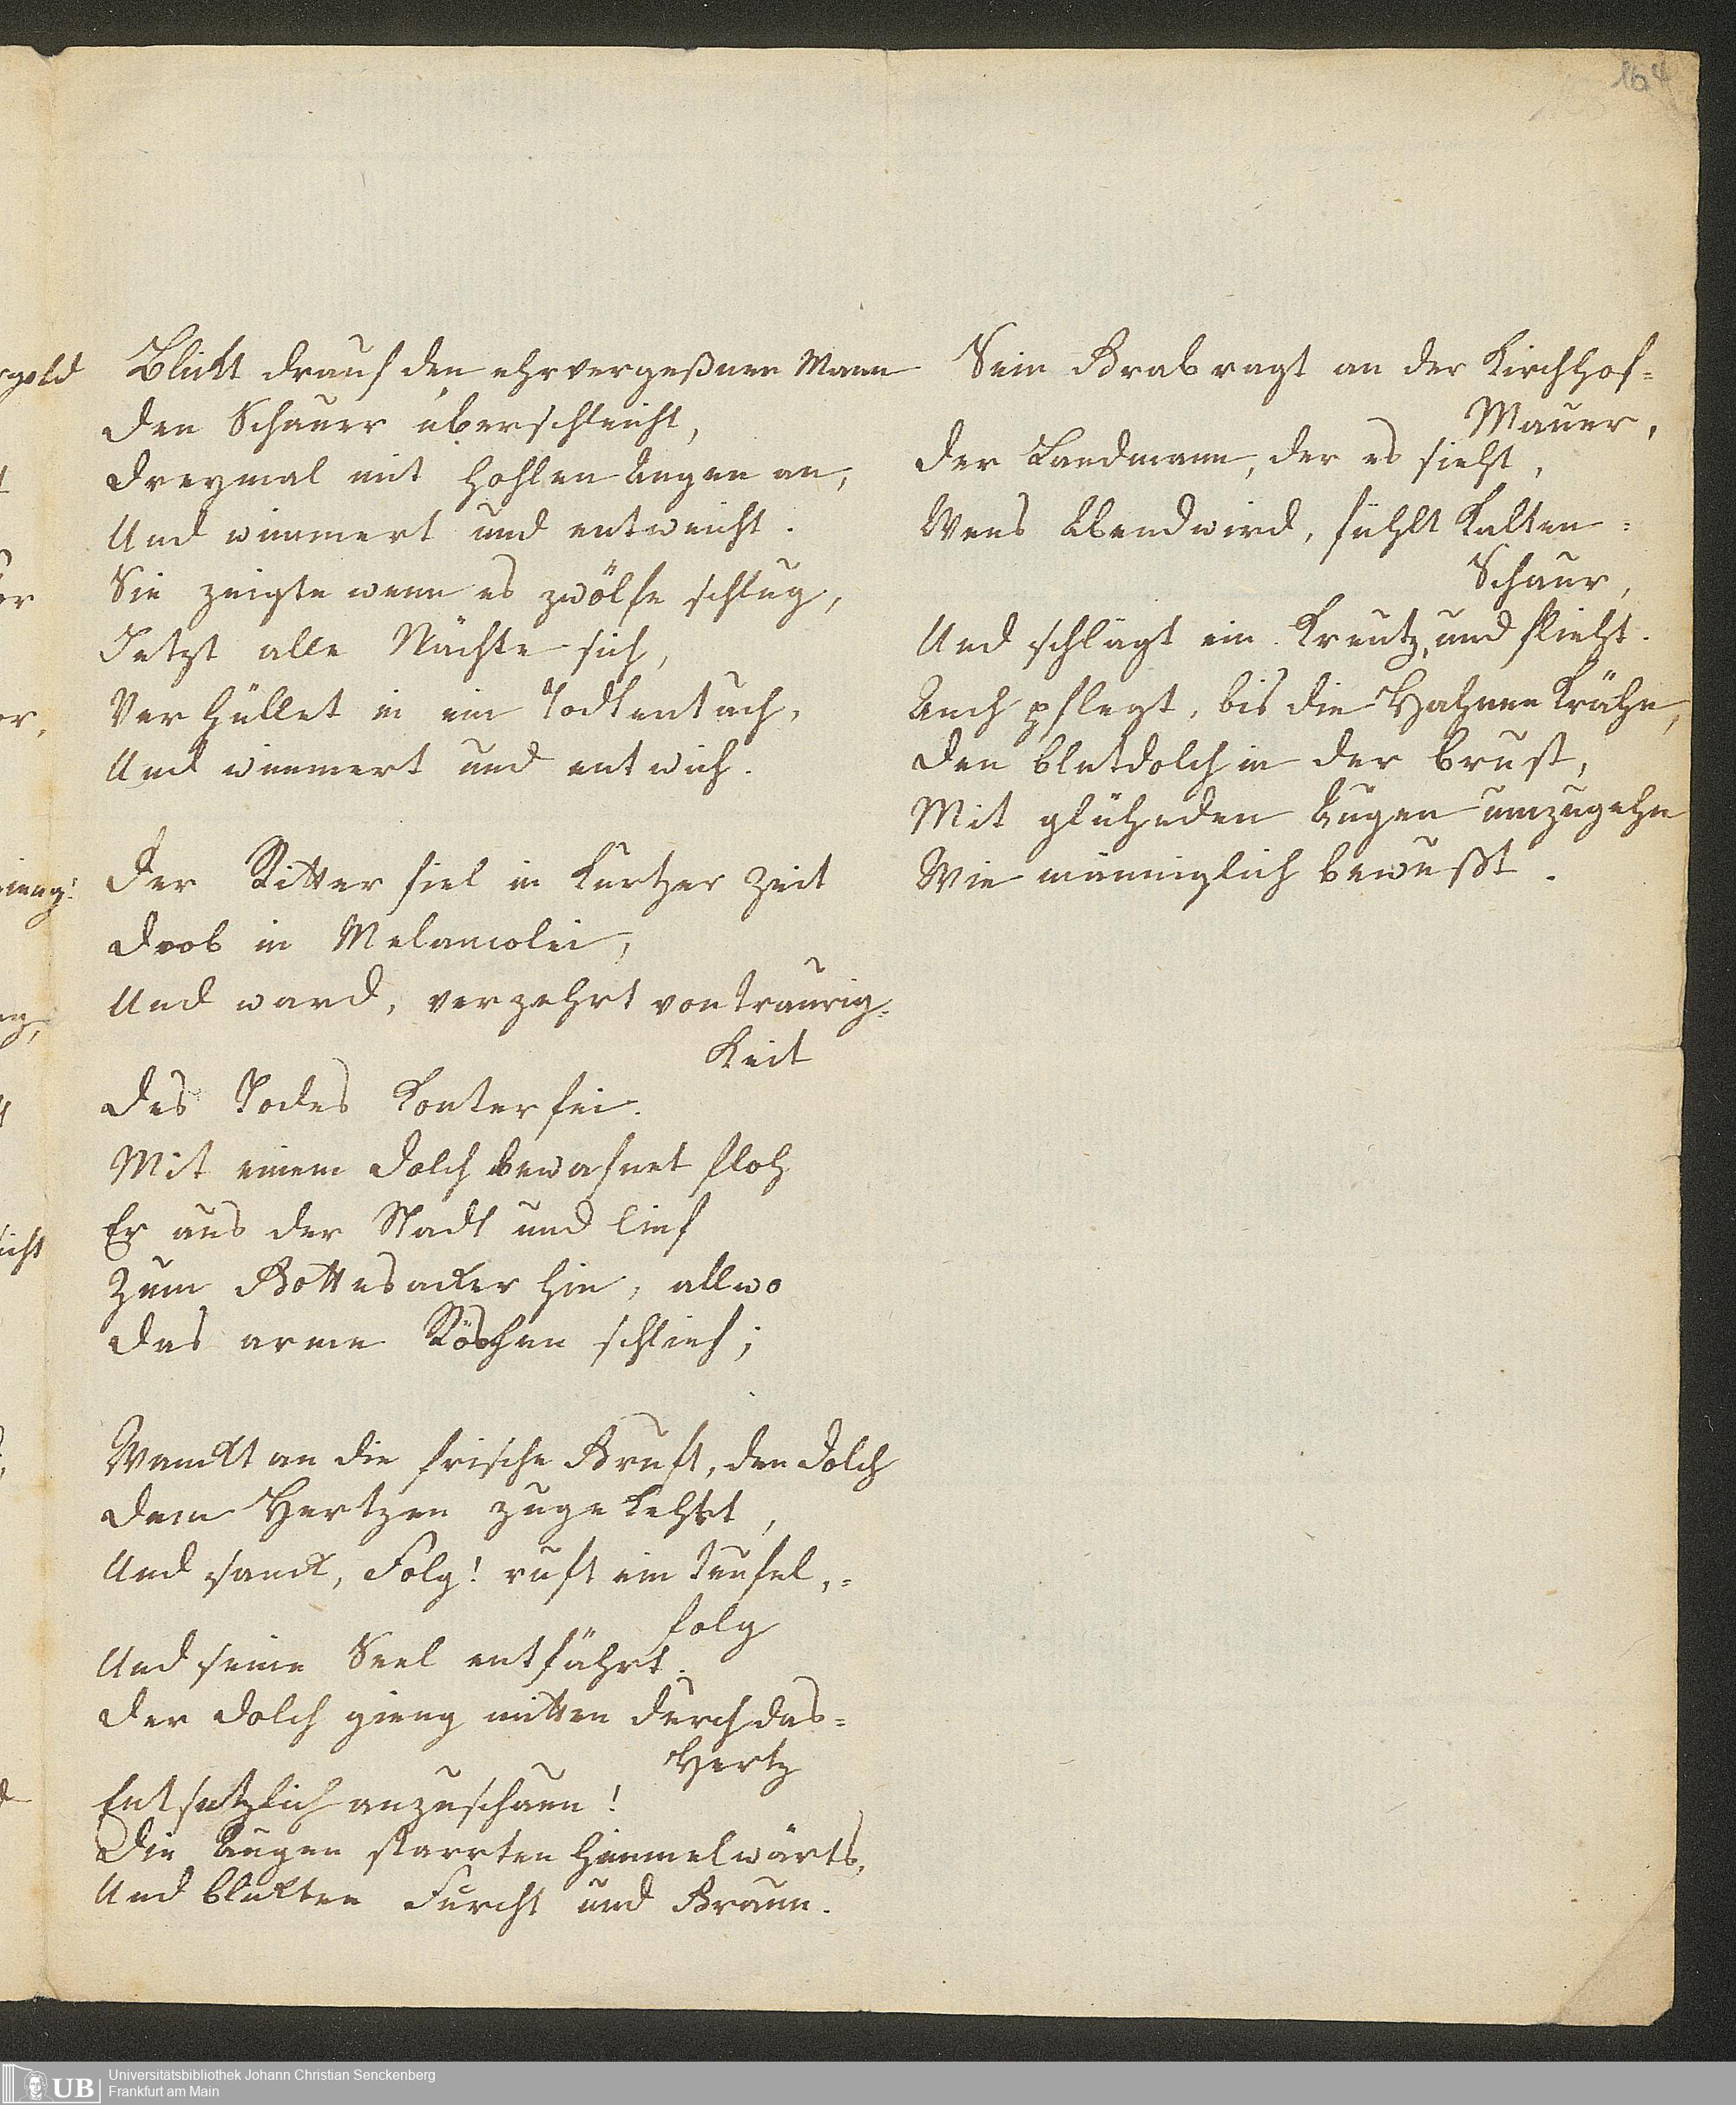 164
Blickt drauf den ehrvergeßnen Mann
Den Schauer überschleicht,
Dreymal mit hohlen Augen an,
Und wimmert und entweicht.
Sie zeigte wenn es zwölfe schlug,
Jetzt alle Nächte sich,
Verhüllet in ein Todtentuch,
Und wimmert und entwich.
Der Ritter fiel in Kurtzer Zeit
Drob in Melancolei,
Und ward, verzehrt von Traurig-
Keit
Des Todes Konterfei.
Mit einem Dolch bewafnet floh
Er aus der Stadt und lief
Zum Gottesacker hin, allwo
Das arme Röschen schlief;
Wanckt an die frische Gruft, den Dolch
Dem Hertzen zugekehrt,
Und sanck, Folg! ruft ein Teufel,=
folg
Und seine Seel entfährt.
Der Dolch gieng mitten durch das=
Hertz
Entsetzlich anzuschaun!
Die Augen starrten himmelwärts,
Und blickten Furcht und Graun.
Sein Grab ragt an der Kirchhof=
Mauer,
Der Landmann, der es sieht,
Wens Abend wird, fühlt Kalten=
Schaur,
Und schlägt ein Kreutz, und flieht.
Auch pflegt, bis die Hahnen Krähn,
Den blutdolch in der brust,
Mit glühnden Augen umzugehn
Wie männiglich bewußt.
Universitätsbibliothek Johann Christian Senckenberg
UB
Frankfurt am Main